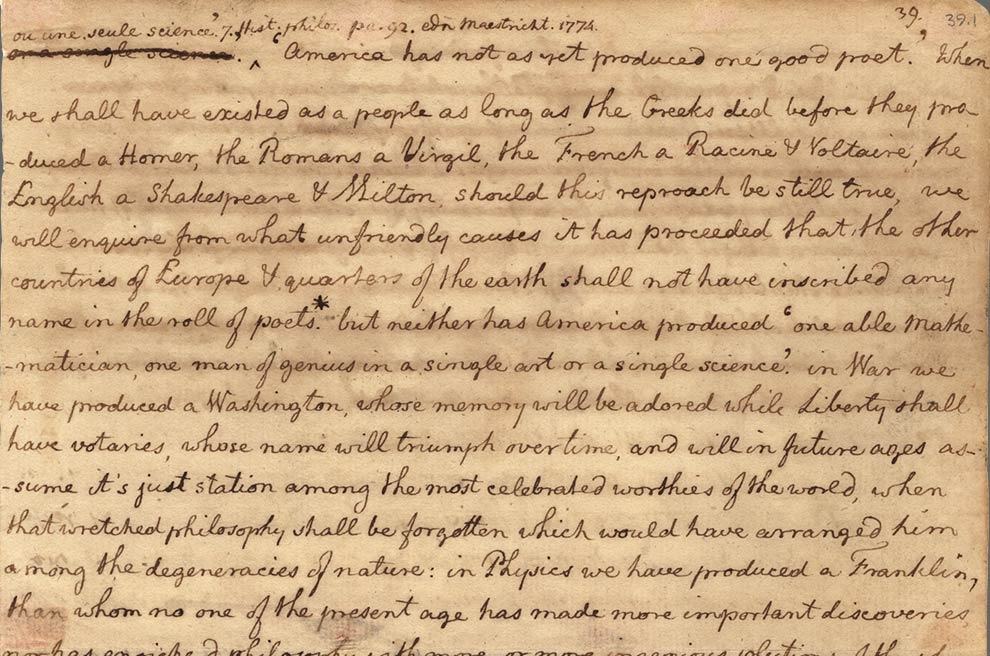 39.
39.1
ou une seule science.' 7. Hist. philos. pa. 92. edn Maestricht. 1774.
or a single science. ‸ 'America has not as yet produced one good poet.' When
we shall have existed as a people as long as the Greeks did before they pro
-duced a Homer, the Romans a Virgil, the French a Racine & Voltaire, the
English a Shakespeare & Milton, should this reproach be still true, we
will enquire from what unfriendly causes it has proceeded that the other
countries of Europe & quarters of the earth shall not have inscribed any
name in the roll of poets.* but neither has America produced 'one able mathe-
-matician, one man of genius in a single art or a single science.' in War we
have produced a Washington, whose memory will be adored while Liberty shall
have votaries, whose name will triumph over time, and will in future ages as-
-sume it's just station among the most celebrated worthies of the world, when
that wretched philosophy shall be forgotten which would have arranged him
among the degeneracies of nature: in Physics we have produced a Franklin,
than whom no one of the present age has made more important discoveries
nor has enriched philosophy with more, or more ingenious solutions of the